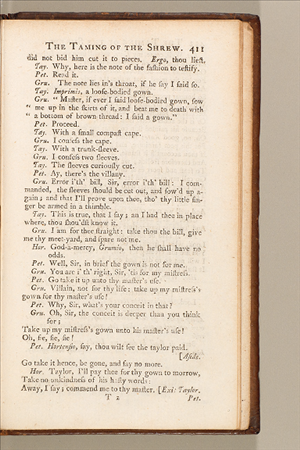 THE TAMING OF THE SHREW. 411
did not bid him cut it to pieces. Ergo, thou liest.
Tay. Why, here is the note of the fashion to testify.
Pet. Read it.
Gru. The note lies in's throat, if he say I said so.
Tay. Imprimis, a loose-bodied gown.
Gru. “ Master, if ever I said loose-bodied gown, sow
“ me up in the skirts of it, and beat me to death with
“ a bottom of brown thread: I said a gown.”
Pet. Proceed.
Tay. With a small compast cape.
Gru. I confess the cape.
Tay. With a trunk-sleeve.
Gru. I confess two sleeves.
Tay. The sleeves curiously cut.
Pet. Ay, there's the villany.
Gru. Error i'th' bill, Sir, error i'th' bill: I com-
manded, the sleeves should be cut out, and sow'd up a-
gain; and that I'll prove upon thee, tho' thy little fin-
ger be armed in a thimble.
Tay. This is true, that I say; an I had thee in place
where, thou shou'dst know it.
Gru. I am for thee straight: take thou the bill, give
me thy meet-yard, and spare not me.
Hor. God-a-mercy, Grumio, then he shall have no
odds.
Pet. Well, Sir, in brief the gown is not for me.
Gru. You are i' th' right, Sir, 'tis for my mistress.
Pet. Go take it up unto thy master's use.
Gru. Villain, not for thy life: take up my mistress's
gown for thy master's use!
Pet. Why, Sir, what's your conceit in that?
Gru. Oh, Sir, the conceit is deeper than you think
for;
Take up my mistress's gown unto his master's use!
Oh, fie, fie, fie!
Pet. Hortensio, say, thou wilt see the taylor paid.
[Aside.
Go take it hence, be gone, and say no more.
Hor. Taylor, I'll pay thee for thy gown to-morrow,
Take no unkindness of his hasty words:
Away, I say; commend me to thy master. [Exit Taylor.
T 2 Pet.